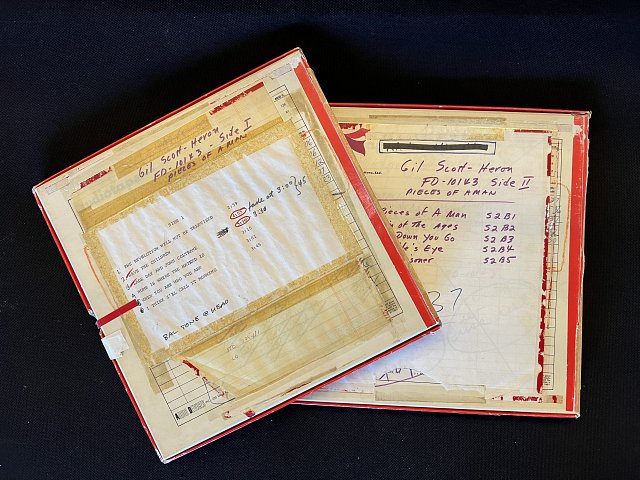 Gil Scott-Heron
FD-10143 Side I
PIECES OF A MAN
SIDE 1
1. THE REVOLUTION WILL NOT BE TELEVISED
2. SAVE THE CHILDREN
3. LADY DAY AND JOHN COLTRANE
4. HOME IS WHERE THE HATRED IS
5. WHEN YOU ARE WHO YOU ARE
6. I THINK I'LL CALL IT MORNING
fade at 3:00
45
3:30
BAL TONE @ HEAD
Gil Scott-Heron
FD-10143 Side II
PIECES OF A MAN
Pieces of A Man S2B1
of The Ages S2B2
Down You Go S2B3
Eye S2B4
soner S2B5
37